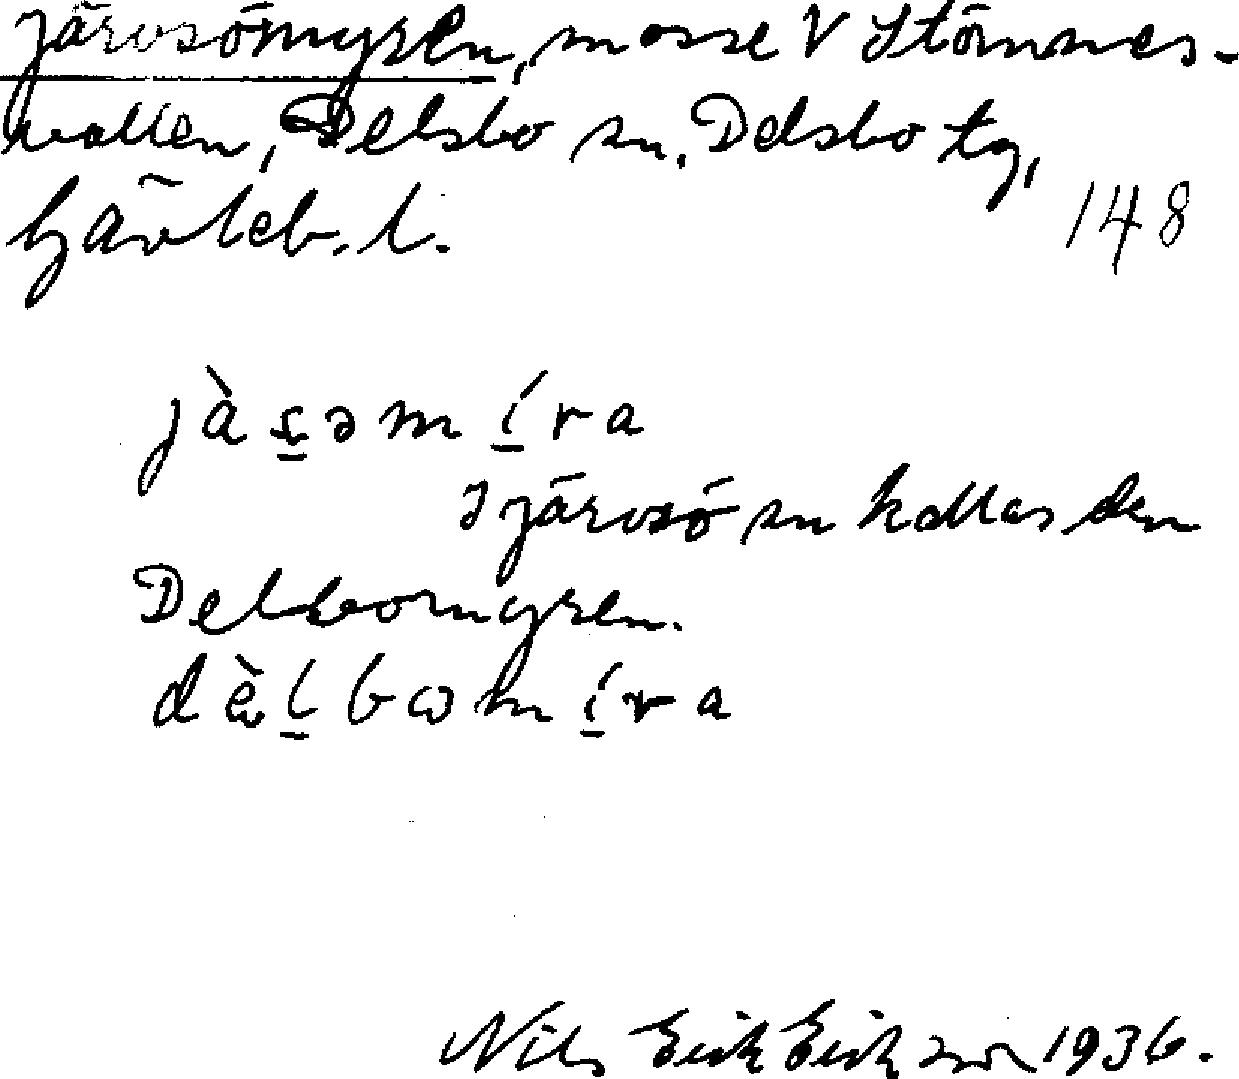 Järvsömyren, mosse V Stömnes-
vallen, Delsbo sn. Delsbo tg,
Gävleb. l.
148
jàs̱əmí̱ra
I Järvsö sn kallas den
Delsbomyren.
dèḻbωmí̱ra
Nils Erik Eriksson 1936.